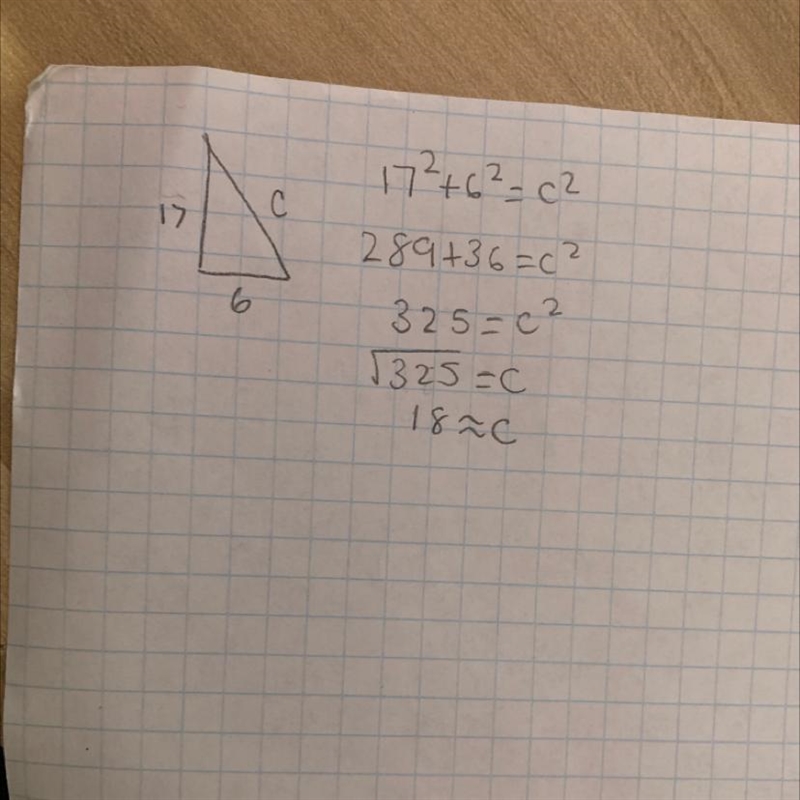 17
C
6
17²+6²=c²
289+36=c²
325=c²
√325=C
18≈C